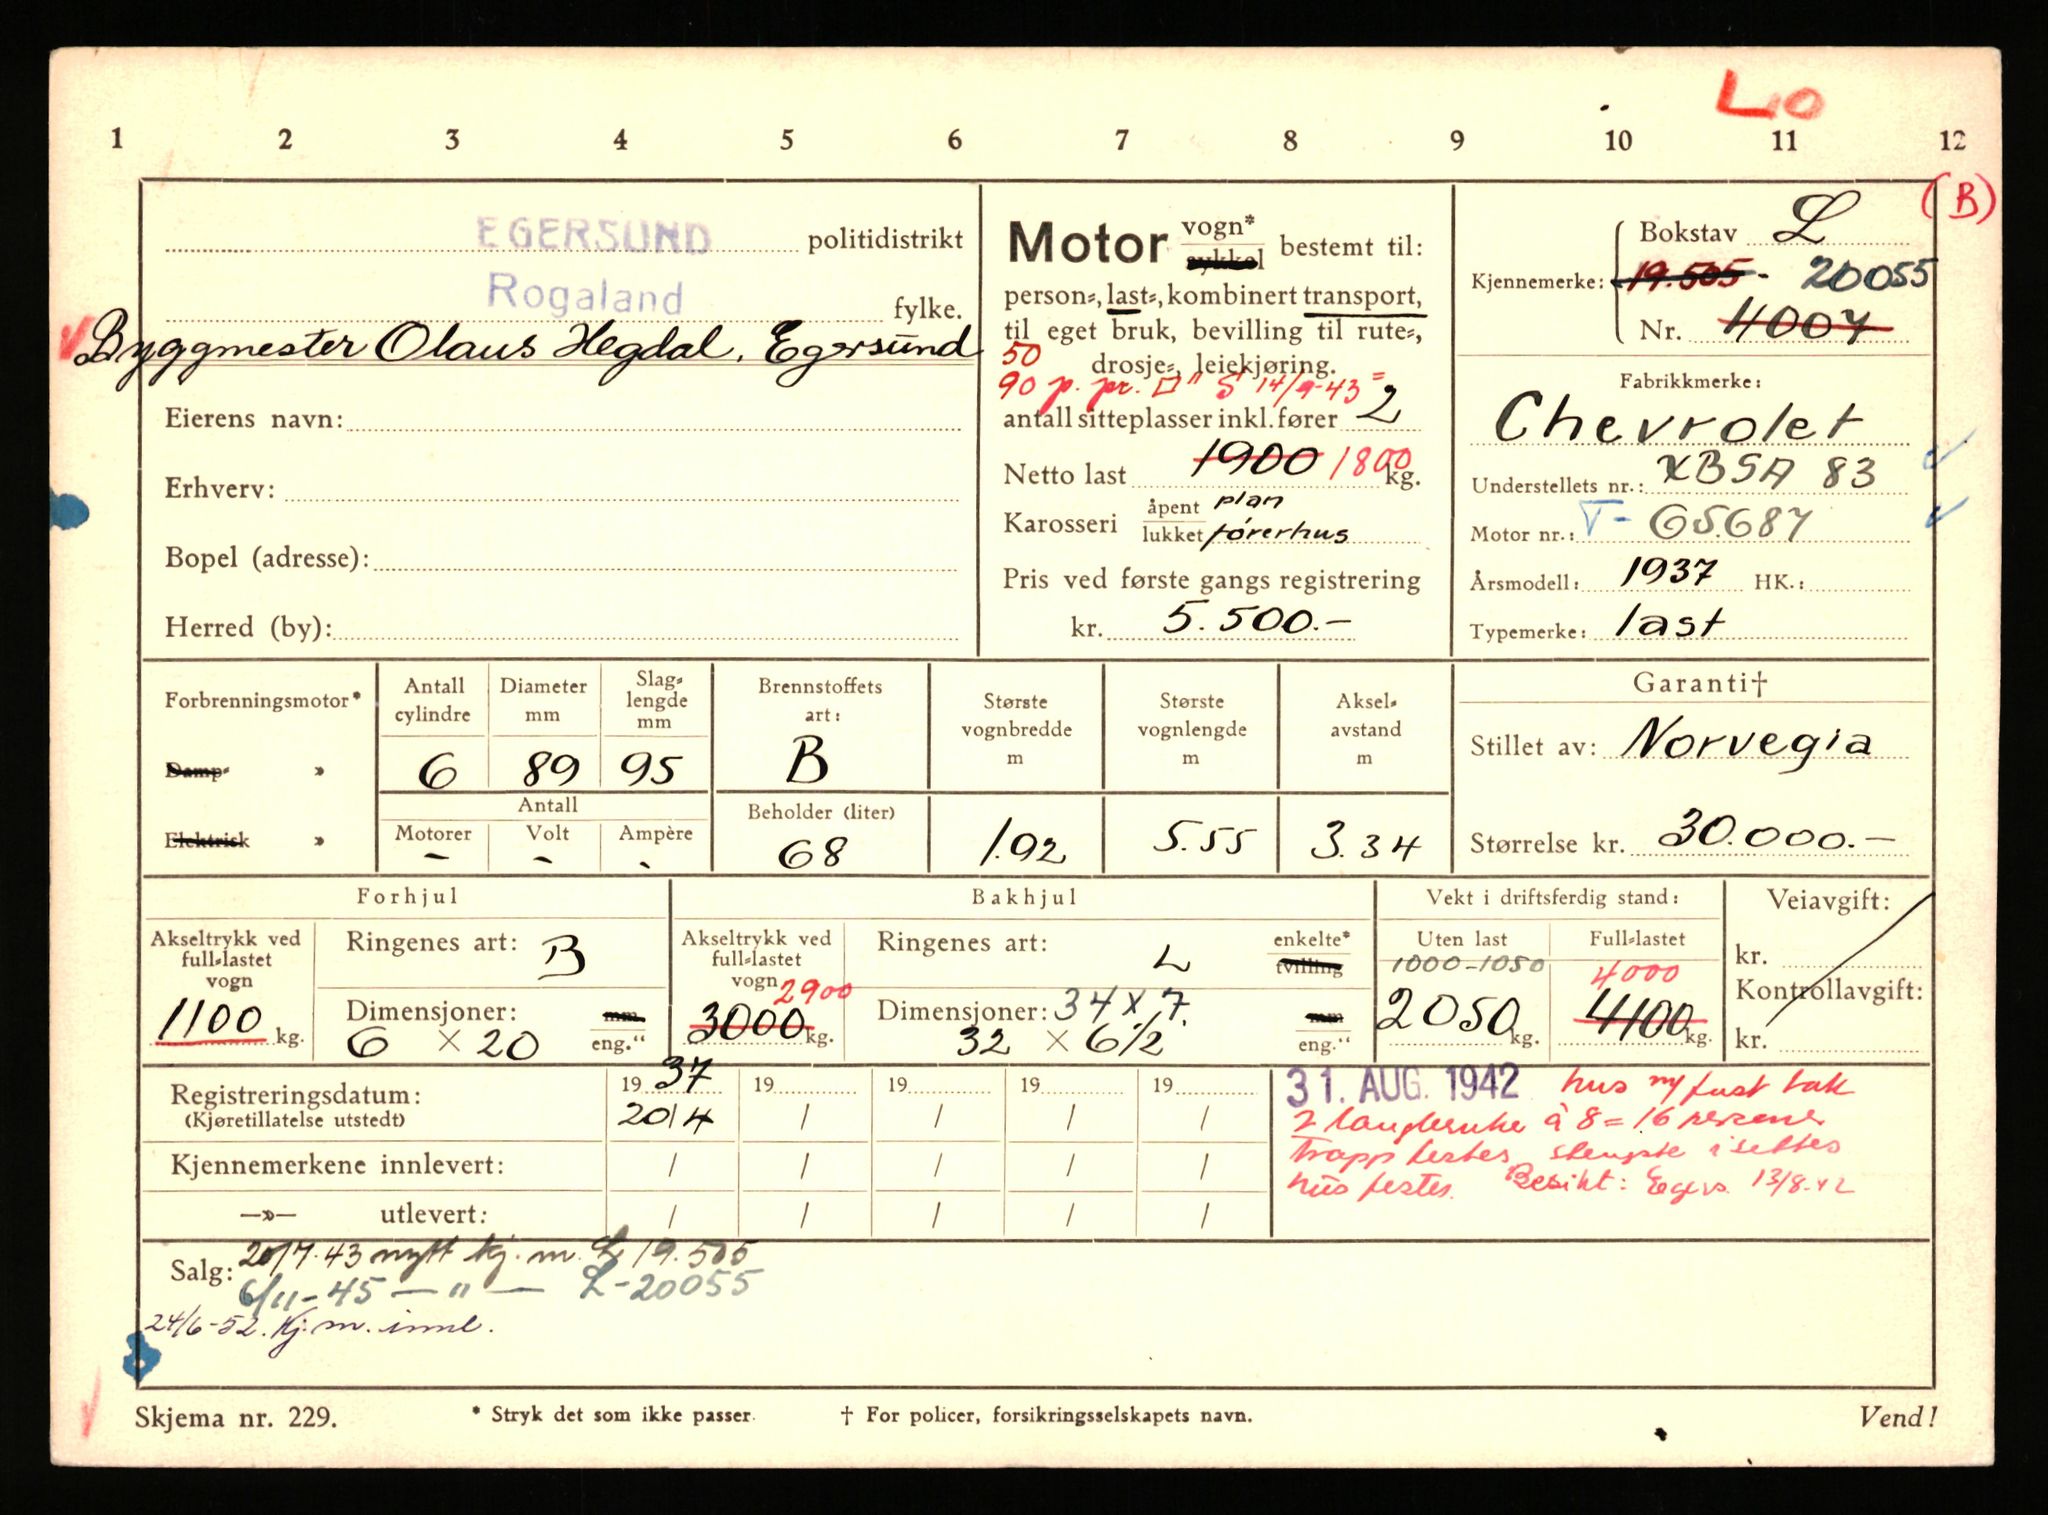 Lo
1 2 3 4 5 6 7 8 9 10 11 12
(B)
EGERSUND politidistrikt
Rogaland fylke.
Byggmester Olaus Hegdal, Egersund
Eierens navn:
Erhverv:
Bopel (adresse):
Herred (by):
Motor vogn* sykkel bestemt til:
person-, last-, kombinert transport,
til eget bruk, bevilling til rute-,
50 drosje-, leiekjøring.
90 p. pr. □" S 14/9-43 =
antall sitteplasser inkl. fører 2
Netto last 1900 1800 kg.
Karosseri åpent plan
lukket førerhus
Pris ved første gangs registrering
kr. 5.500.-
Kjennemerke: Bokstav L
19.505 - 20055
Nr. 4007
Fabrikkmerke:
Chevrolet
Understellets nr.: XBSA 83
Motor nr.: T- 65687
Årsmodell: 1937 HK.:
Typemerke: last
Forbrenningsmotor*
Damp- »
Elektrisk »
Antall cylindre
6
Diameter mm
89
Slag-lengde mm
95
Antall
Motorer Volt Ampère
- - -
Brennstoffets art:
B
Beholder (liter)
68
Største vognbredde m
1.92
Største vognlengde m
5.55
Aksel-avstand m
3.34
Garanti†
Stillet av: Norvegia
Størrelse kr. 30.000.-
Forhjul
Akseltrykk ved full-lastet vogn
1100 kg.
Ringenes art: B
Dimensjoner: mm
6 × 20 eng."
Bakhjul
Akseltrykk ved full-lastet vogn
2900
3000 kg.
Ringenes art: L enkelte* tvilling
Dimensjoner: 34 x 7. mm
32 × 6 1/2 eng."
Vekt i driftsferdig stand:
Uten last
1000-1050
2050 kg.
Full-lastet
4000
4100 kg.
Veiavgift:
kr.
Kontrollavgift:
kr.
Registreringsdatum: 19 37 19 19 19 19
(Kjøretillatelse utstedt) 20/4 / / / /
Kjennemerkene innlevert: / / / / /
—»— utlevert: / / / / /
31. AUG. 1942 hus m/ fast tak
2 à 8 = 16 personer
Trapp festes i settes
hus festes. Besikt: Egers. 13/8-42
Salg: 20/7-43 nytt kj. m. L 19.505
6/11-45 — " — L-20055
24/6-52. kj. m. innl.
Skjema nr. 229.
* Stryk det som ikke passer.
† For policer, forsikringsselskapets navn.
Vend!